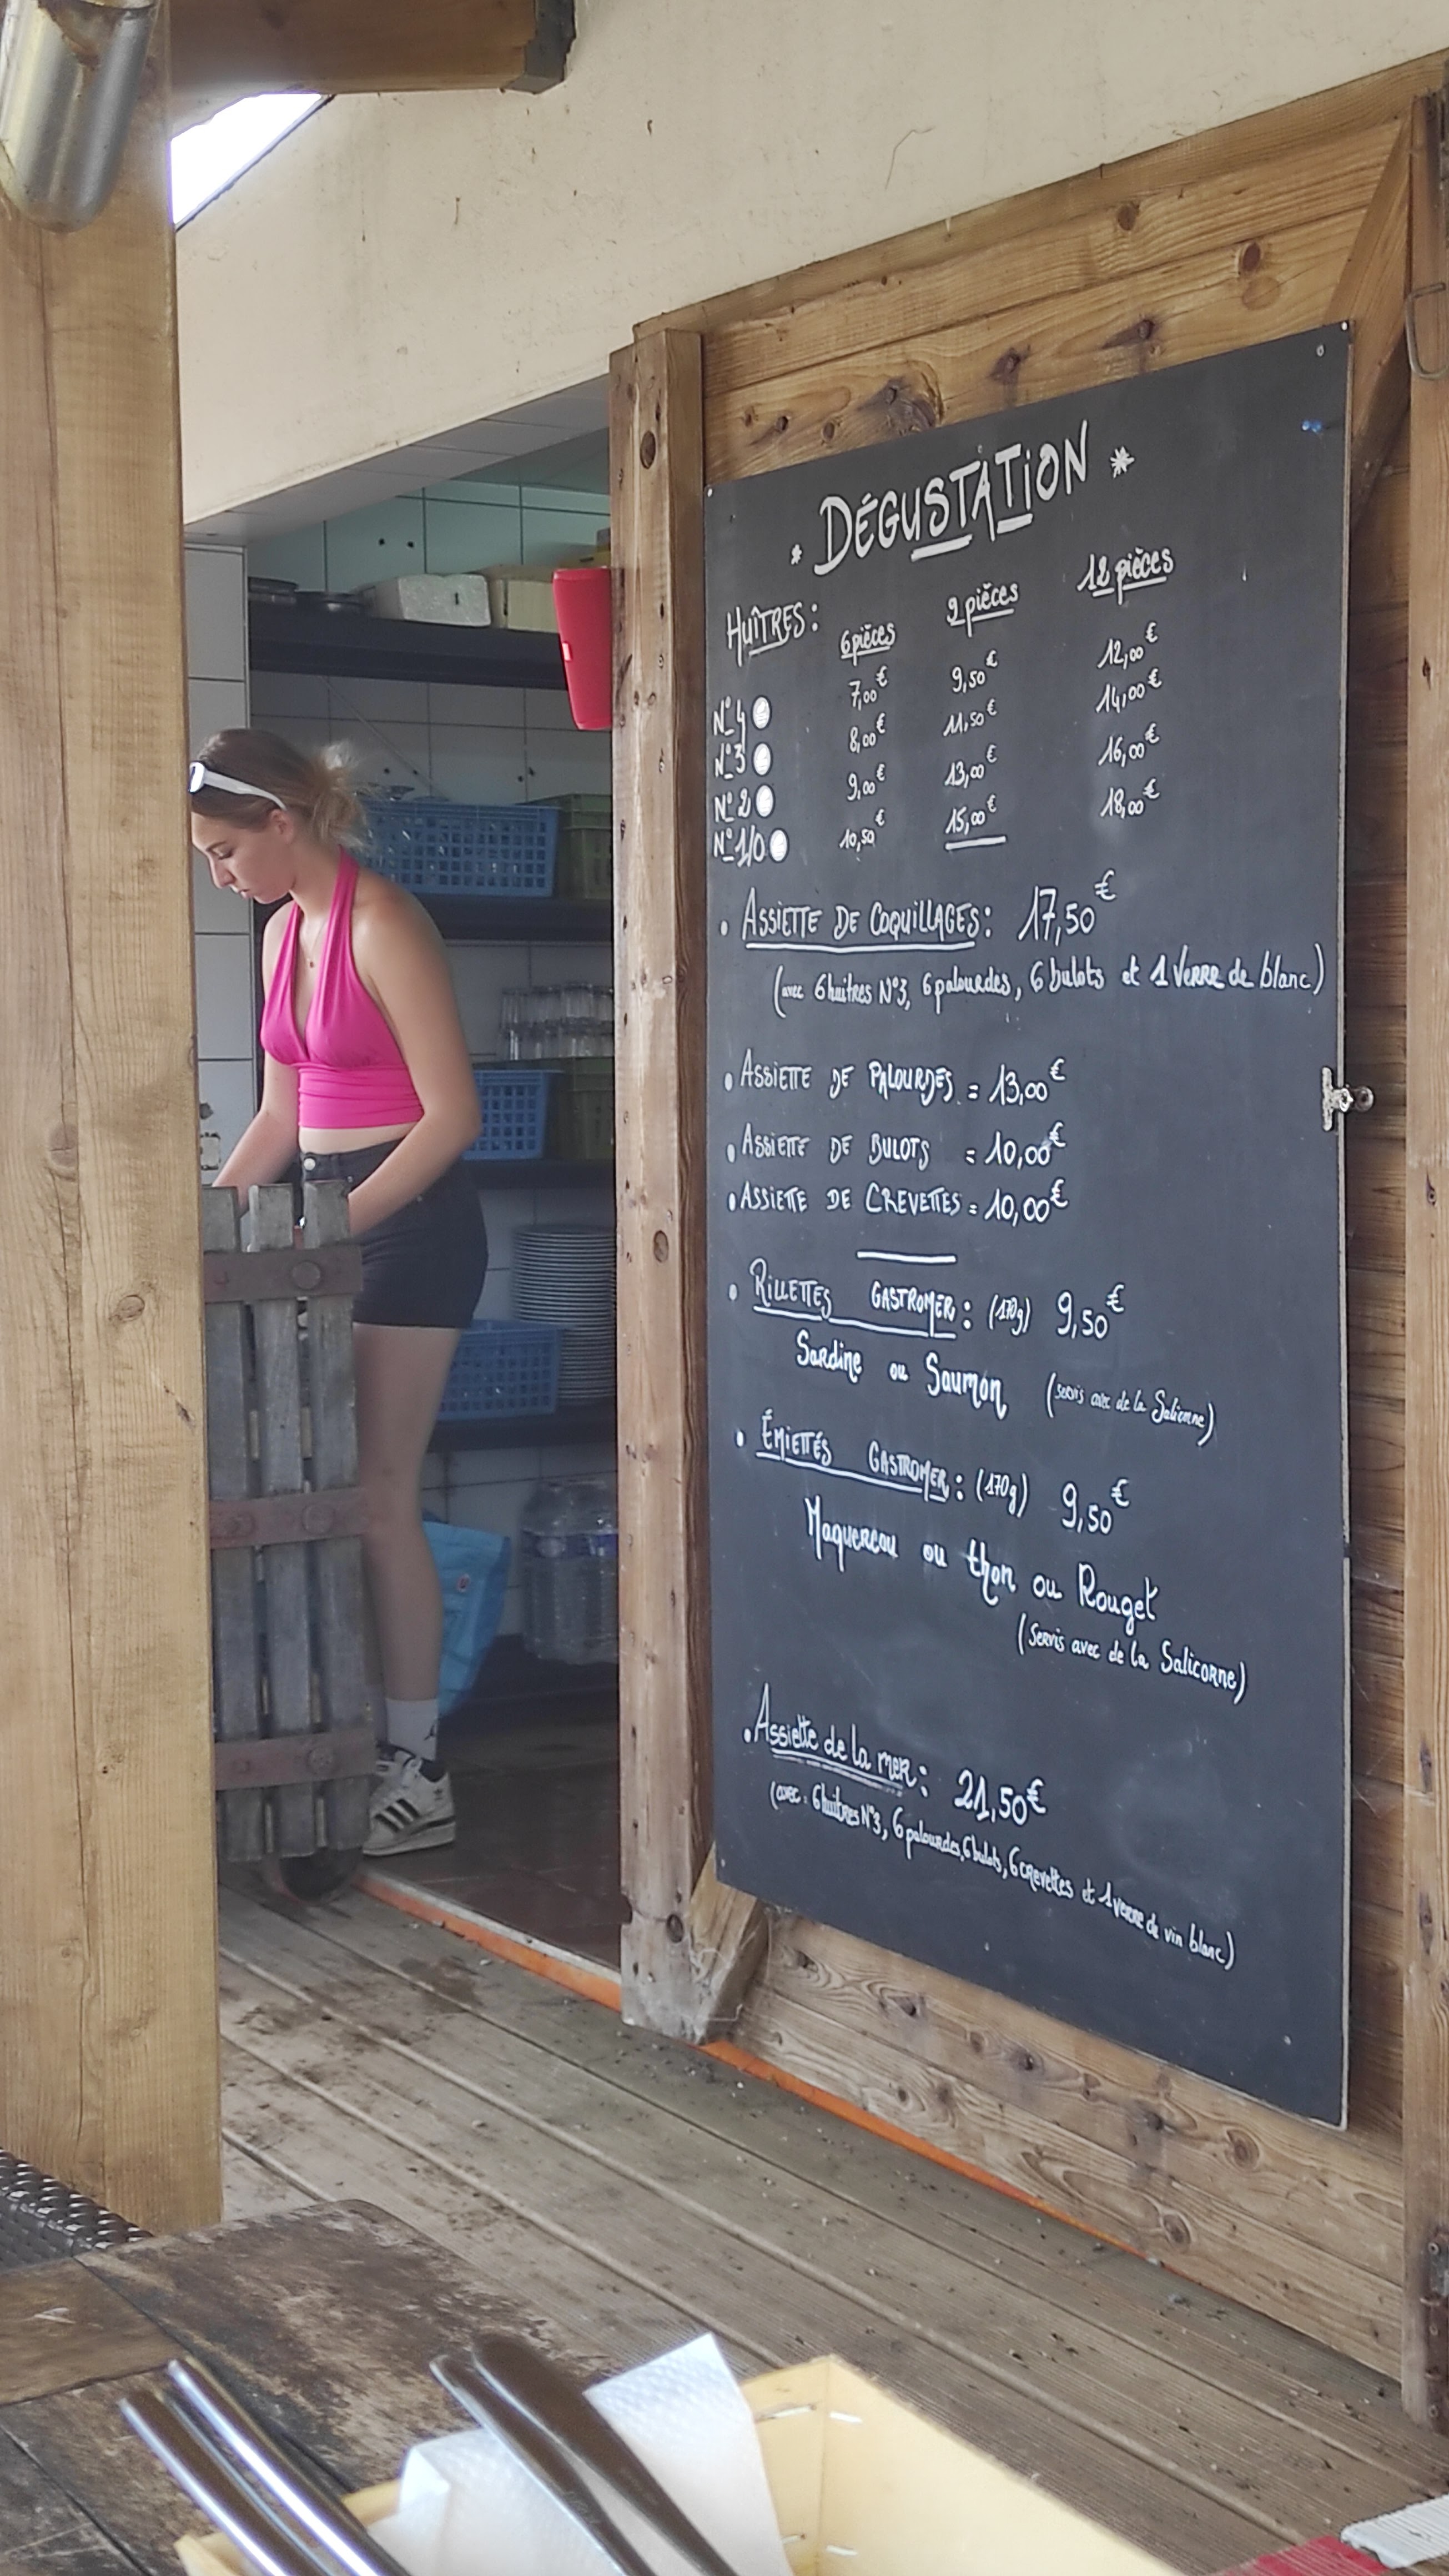 * DÉGUSTATION *
HUÎTRES : 6 pièces 9 pièces 12 pièces
N°4 7,00€ 9,50€ 12,00€
N°3 8,00€ 11,50€ 14,00€
N°2 9,00€ 13,00€ 16,00€
N°1/0 10,50€ 15,00€ 18,00€
• ASSIETTE DE COQUILLAGES : 17,50€
(avec 6 huitres N°3, 6 palourdes, 6 bulots et 1 verre de blanc)
• ASSIETTE DE PALOURDES = 13,00€
• ASSIETTE DE BULOTS = 10,00€
• ASSIETTE DE CREVETTES = 10,00€
• RILLETTES GASTROMER : (170g) 9,50€
Sardine ou Saumon (servis avec de la Salicorne)
• ÉMIETTÉS GASTROMER : (170g) 9,50€
Maquereau ou thon ou Rouget
(Servis avec de la Salicorne)
• Assiette de la mer : 21,50€
(avec : 6 huitres N°3, 6 palourdes, 6 bulots, 6 crevettes et 1 verre de vin blanc)